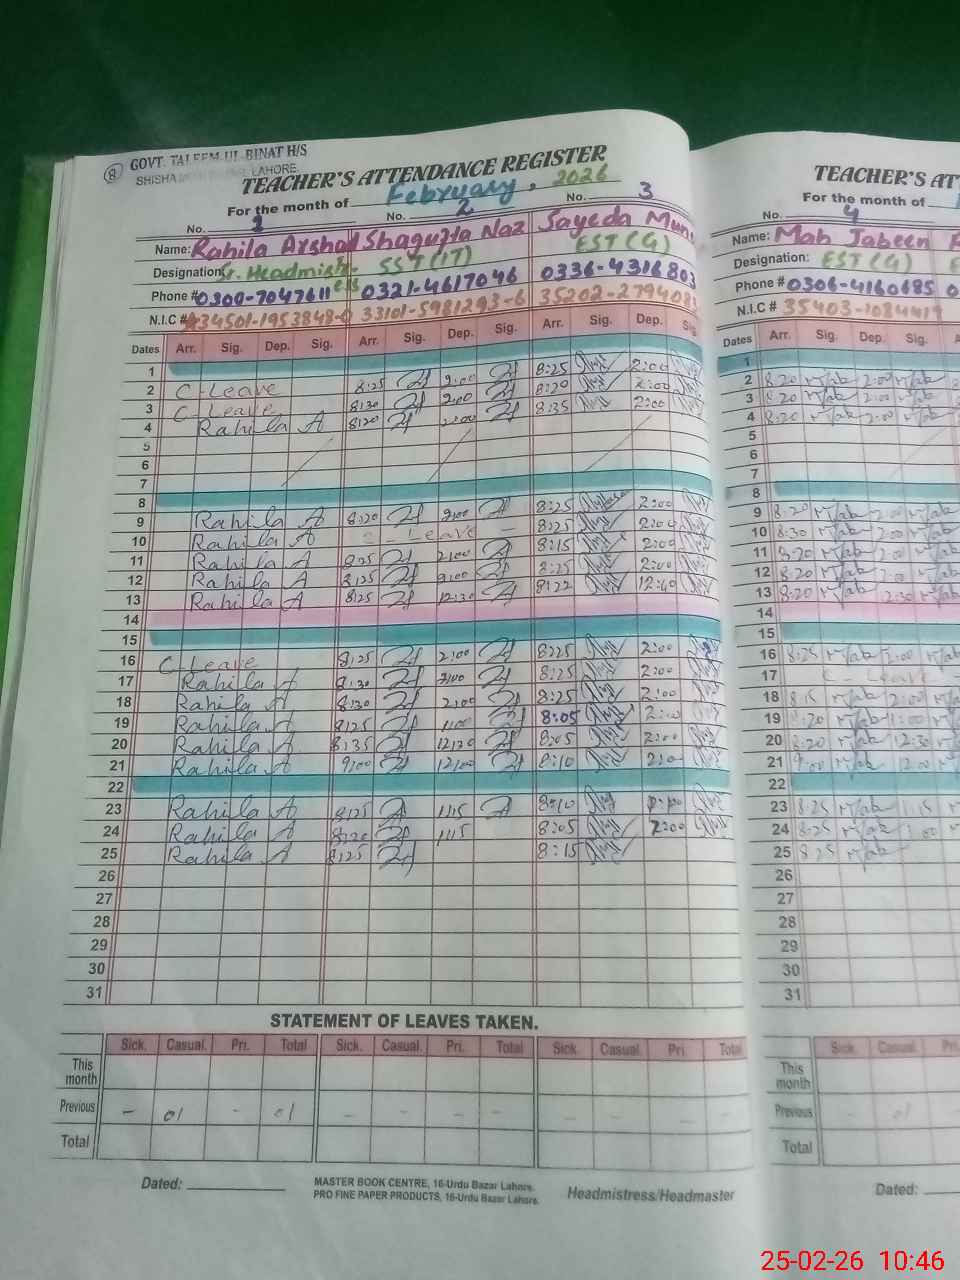 8
GOVT. TALEEM-UL-BINAT H/S
SHISHA LAHORE
TEACHER'S ATTENDANCE REGISTER
For the month of February, 2026
No. 1 No. 2 No. 3
Name: Rahila Arshad Shagufta Naz Sayeda
Designation: Sr. Headmistress SST (IT) EST (G)
Phone # 0300-7047611 0321-4617046 0336-4316803
N.I.C # 34501-1953848-0 33101-5981293-6 35202-279408
Dates Arr. Sig. Dep. Sig. Arr. Sig. Dep. Sig. Arr. Sig. Dep. Sig.
1
2 C-Leave 8:25 2:00 8:25 2:00
3 C-Leave 8:30 2:00 8:20 2:00
4 Rahila A 8:20 2:00 8:35 2:00
5
6
7
8
9 Rahila A 8:20 2:00 8:25 2:00
10 Rahila A C-Leave 8:25 2:00
11 Rahila A 8:25 2:00 8:15 2:00
12 Rahila A 8:25 2:00 8:25 2:00
13 Rahila A 8:25 12:30 8:22 12:40
14
15
16 C-Leave 8:25 2:00 8:25 2:00
17 Rahila A 8:30 2:00 8:25 2:00
18 Rahila A 8:30 2:00 8:25 2:00
19 Rahila A 8:25 1:00 8:05 2:00
20 Rahila A 8:35 12:30 8:05 2:00
21 Rahila A 9:00 12:00 8:10 2:0
22
23 Rahila A 8:25 1:15 8:10
24 Rahila A 8:20 1:15 8:05 2:00
25 Rahila A 8:25 8:15
26
27
28
29
30
31
STATEMENT OF LEAVES TAKEN.
Sick. Casual. Pri. Total Sick. Casual. Pri. Total Sick. Casual. Pri. Total
This month
Previous - 01 - 01 - - - - - - - -
Total
Dated:
MASTER BOOK CENTRE, 16-Urdu Bazar Lahore.
PRO FINE PAPER PRODUCTS, 16-Urdu Bazar Lahore.
Headmistress/Headmaster
TEACHER'S AT
For the month of
No. 4
Name: Mah Jabeen
Designation: EST (G)
Phone # 0306-4160685
N.I.C # 35403-1084419
Dates Arr. Sig. Dep. Sig.
1
2 8:20 2:00
3 8:20 2:00
4 8:20 2:00
5
6
7
8
9 8:20 2:00
10 8:30 2:00
11 8:20 2:00
12 8:20 2:00
13 8:20 12:30
14
15
16 8:25 2:00
17 C-Leave
18 8:15 2:00
19 8:20 1:00
20 8:20 12:30
21 9:00 12:00
22
23 8:25 1:15
24 8:25 1:00
25 8:25
26
27
28
29
30
31
Sick. Casual. Pri.
This month
Previous - 01 -
Total
Dated:
25-02-26 10:46